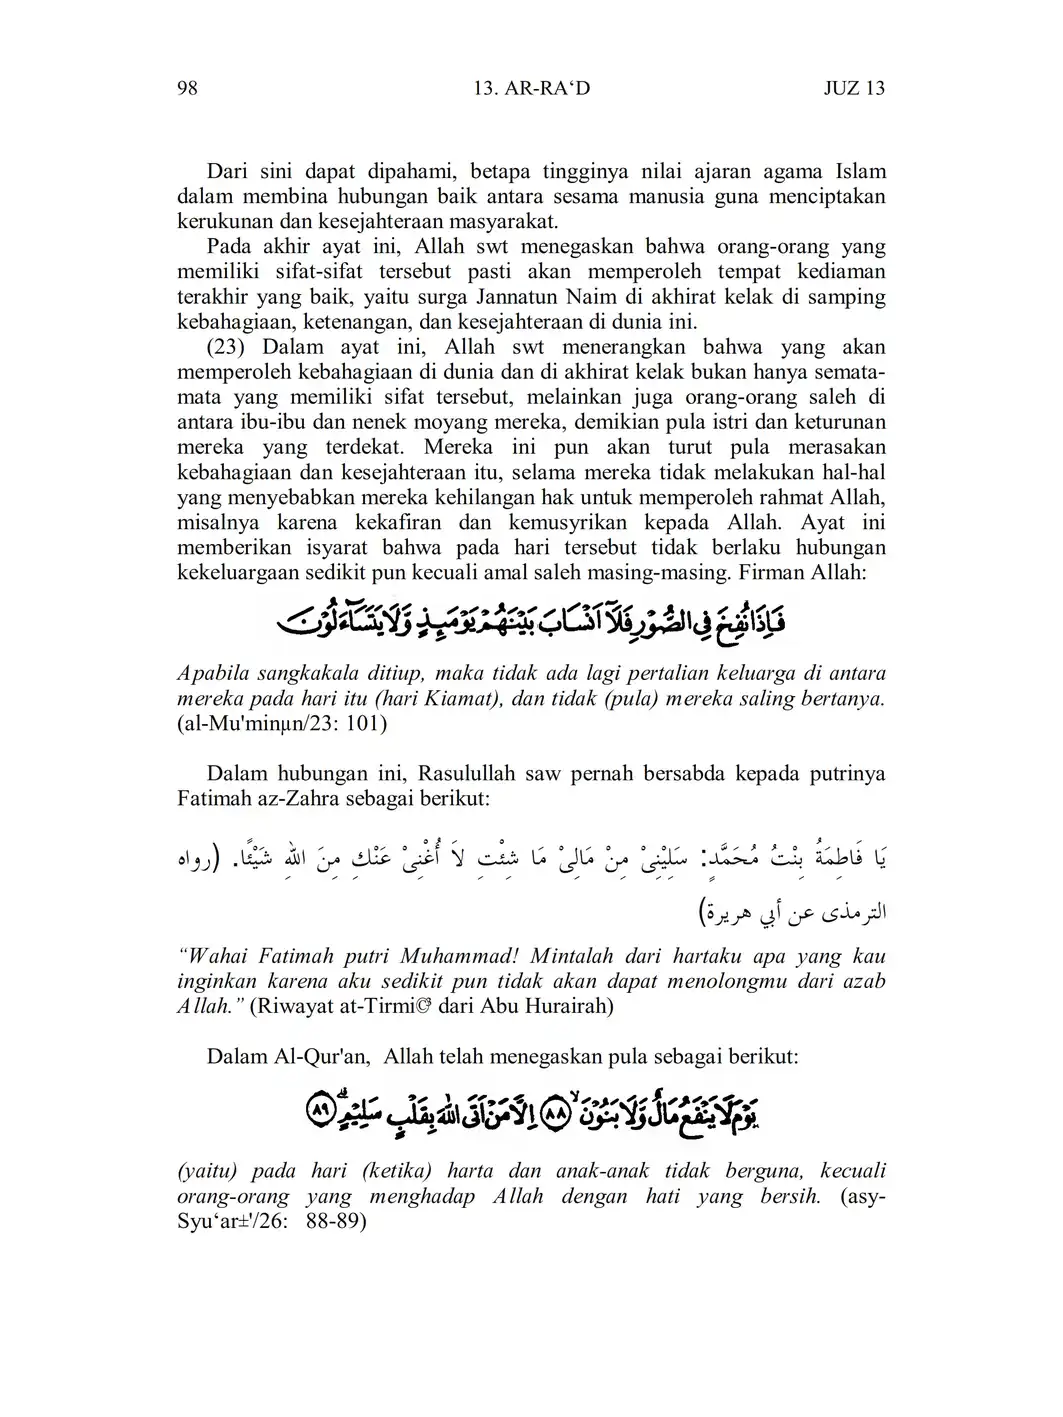 98 13. AR-RA‘D JUZ 13
Dari sini dapat dipahami, betapa tingginya nilai ajaran agama Islam
dalam membina hubungan baik antara sesama manusia guna menciptakan
kerukunan dan kesejahteraan masyarakat.
Pada akhir ayat ini, Allah swt menegaskan bahwa orang-orang yang
memiliki sifat-sifat tersebut pasti akan memperoleh tempat kediaman
terakhir yang baik, yaitu surga Jannatun Naim di akhirat kelak di samping
kebahagiaan, ketenangan, dan kesejahteraan di dunia ini.
(23) Dalam ayat ini, Allah swt menerangkan bahwa yang akan
memperoleh kebahagiaan di dunia dan di akhirat kelak bukan hanya semata-
mata yang memiliki sifat tersebut, melainkan juga orang-orang saleh di
antara ibu-ibu dan nenek moyang mereka, demikian pula istri dan keturunan
mereka yang terdekat. Mereka ini pun akan turut pula merasakan
kebahagiaan dan kesejahteraan itu, selama mereka tidak melakukan hal-hal
yang menyebabkan mereka kehilangan hak untuk memperoleh rahmat Allah,
misalnya karena kekafiran dan kemusyrikan kepada Allah. Ayat ini
memberikan isyarat bahwa pada hari tersebut tidak berlaku hubungan
kekeluargaan sedikit pun kecuali amal saleh masing-masing. Firman Allah:
فَاِذَا نُفِخَ فِى الصُّوْرِ فَلَآ اَنْسَابَ بَيْنَهُمْ يَوْمَىِٕذٍ وَّلَا يَتَسَاۤءَلُوْنَ
Apabila sangkakala ditiup, maka tidak ada lagi pertalian keluarga di antara
mereka pada hari itu (hari Kiamat), dan tidak (pula) mereka saling bertanya.
(al-Mu'minµn/23: 101)
Dalam hubungan ini, Rasulullah saw pernah bersabda kepada putrinya
Fatimah az-Zahra sebagai berikut:
يَا فَاطِمَةُ بِنْتُ مُحَمَّدٍ: سَلِيْنِىْ مِنْ مَالِىْ مَا شِئْتِ لاَ أُغْنِىْ عَنْكِ مِنَ اللهِ شَيْئًا. (رواه
الترمذى عن أبي هريرة)
“Wahai Fatimah putri Muhammad! Mintalah dari hartaku apa yang kau
inginkan karena aku sedikit pun tidak akan dapat menolongmu dari azab
Allah.” (Riwayat at-Tirmi©³ dari Abu Hurairah)
Dalam Al-Qur'an, Allah telah menegaskan pula sebagai berikut:
يَوْمَ لَا يَنْفَعُ مَالٌ وَّلَا بَنُوْنَ ۙ ٨٨ اِلَّا مَنْ اَتَى اللّٰهَ بِقَلْبٍ سَلِيْمٍ ۗ ٨٩
(yaitu) pada hari (ketika) harta dan anak-anak tidak berguna, kecuali
orang-orang yang menghadap Allah dengan hati yang bersih. (asy-
Syu‘ar±'/26: 88-89)